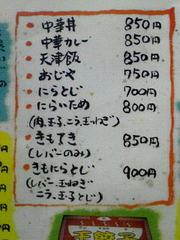 中華丼 850円
中華カレー 850円
天津飯 850円
おじや 750円
にらとじ 700円
にらいため 800円
(肉、玉子、ニラ、玉ねぎ)
きもてき 850円
(レバーのみ)
きもにらとじ 900円
(レバー、玉ねぎ
ニラ、玉子とじ)